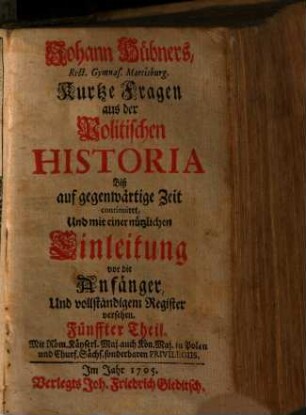 Johann Hübners,
Rect. Gymnas. Martisburg.
Kurtze Fragen
aus der
Politischen
HISTORIA
Biß
auf gegenwärtige Zeit
continuiret,
Und mit einer nützlichen
Einleitung
vor die
Anfänger,
Und vollständigem Register
versehen.
Fünffter Theil.
Mit Röm. Käyserl. Maj. auch Kön. Maj. in Polen
und Churf. Sächs. sonderbaren PRIVILEGIIS.
Im Jahr 1705.
Verlegts Joh. Friedrich Gleditsch.